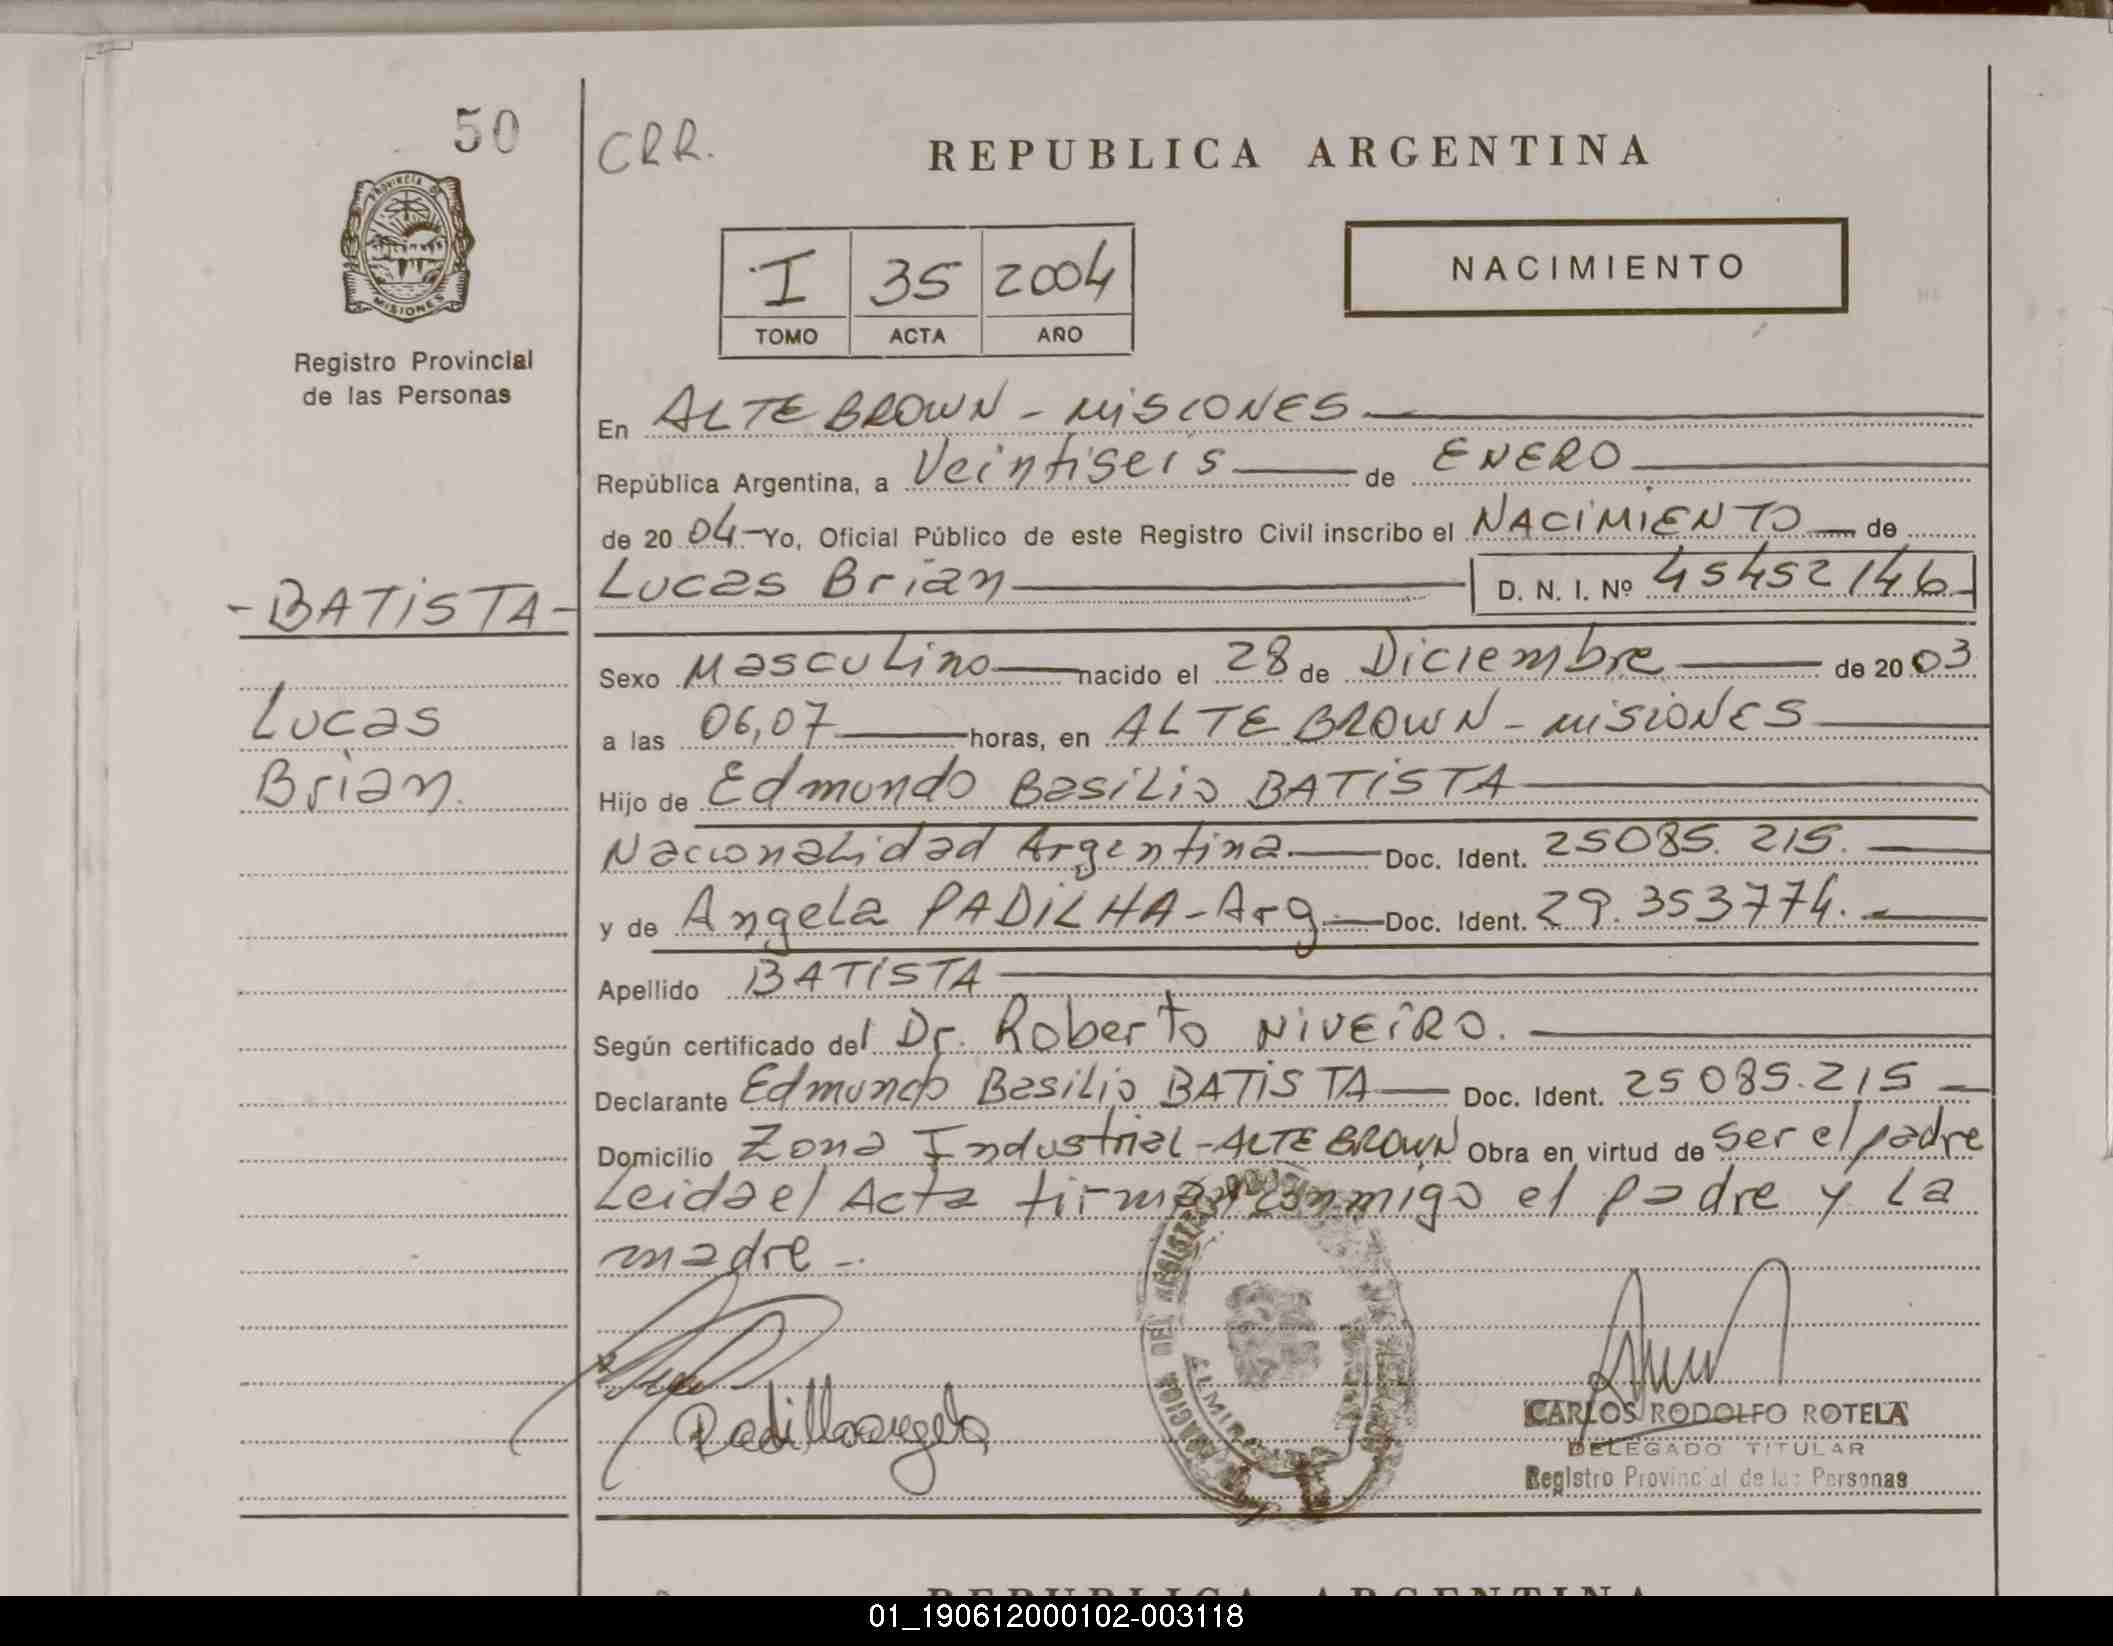 50
CRR.
REPUBLICA ARGENTINA
PROVINCIA DE
MISIONES
Registro Provincial
de las Personas
I 35 2004
TOMO ACTA AÑO
NACIMIENTO
En ALTE BROWN - MISIONES
República Argentina, a Veintiseis de ENERO
de 20 04 Yo, Oficial Público de este Registro Civil inscribo el NACIMIENTO de
Lucas Brian D. N. I. Nº 45452146
- BATISTA -
Lucas
Brian.
Sexo Masculino nacido el 28 de Diciembre de 20 03
a las 06,07 horas, en ALTE BROWN - MISIONES
Hijo de Edmundo Basilio BATISTA
Nacionalidad Argentina Doc. Ident. 25085.215.
y de Angela PADILHA - Arg Doc. Ident. 29.353774.
Apellido BATISTA
Según certificado del Dr. Roberto NIVEIRO.
Declarante Edmundo Basilio BATISTA Doc. Ident. 25085.215
Domicilio Zona Industrial - ALTE BROWN Obra en virtud de ser el padre
Leida el Acta firman conmigo el padre y La
madre -.
Padilla angela
CARLOS RODOLFO ROTELA
DELEGADO TITULAR
Registro Provincial de las Personas
REPUBLICA ARGENTINA
01_190612000102-003118